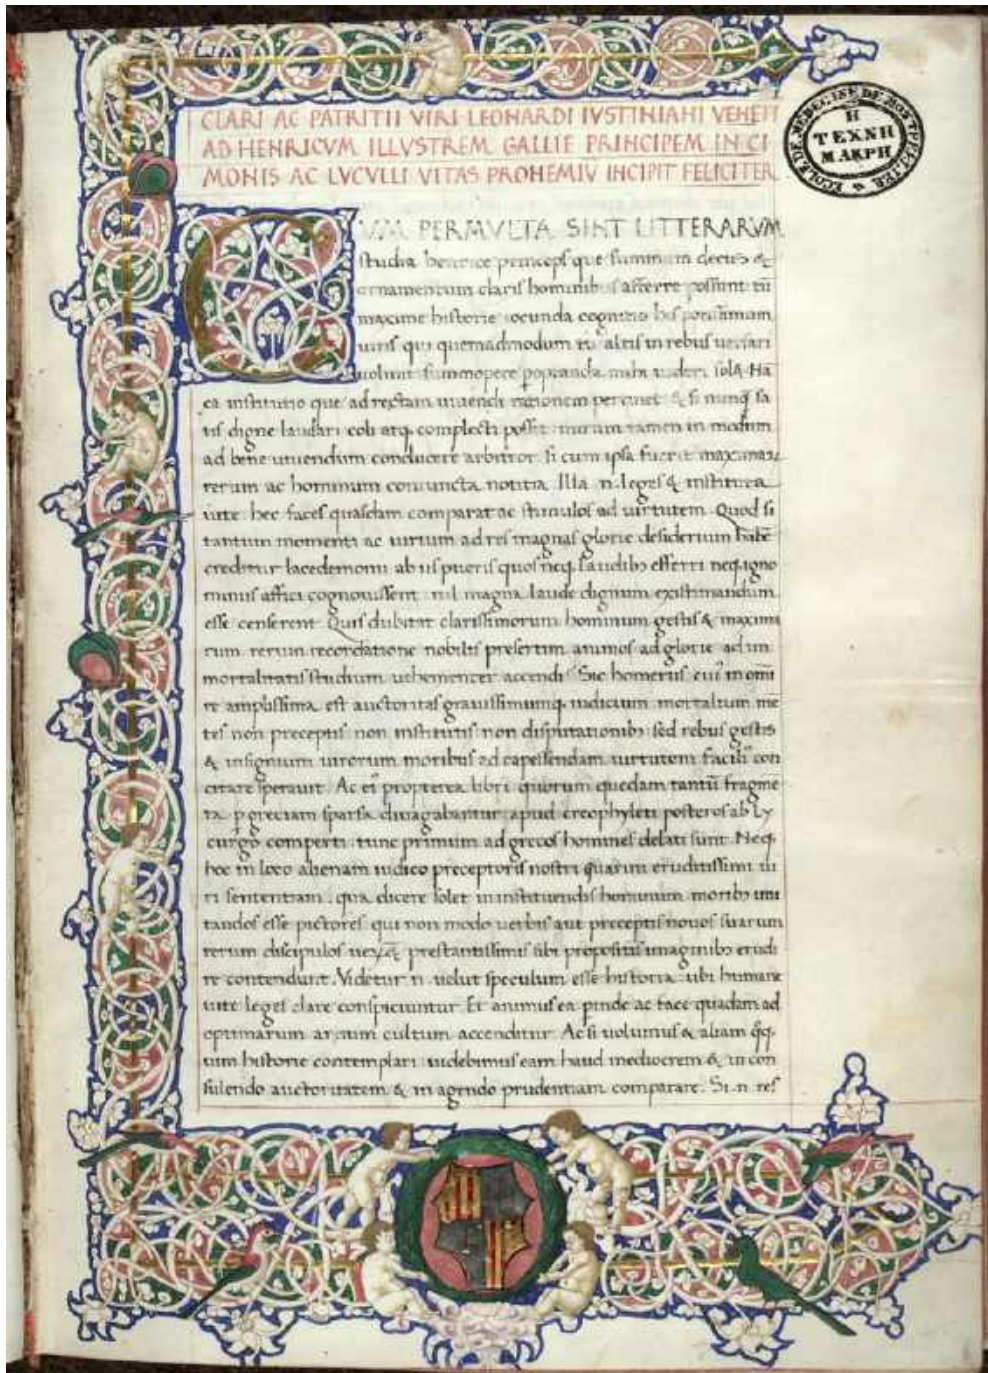 CLARI AC PATRITII VIRI LEONARDI IVSTINIANI VENETI
AD HENRICVM ILLVSTREM GALLIE PRINCIPEM IN CI
MONIS AC LVCVLLI VITAS PROHEMIV INCIPIT FELICITER
ECOLE DE MEDECINE DE MONTPELLIER
Η
ΤΕΧΝΗ
ΜΑΚΡΗ
CVM PERMVLTA SINT LITTERARVM
studia henrice princeps que summum decus &
ornamentum claris hominibus afferre possunt tū
maxime historie iocunda cognitio his potissimum
uiris qui quemadmodum tu altis in rebus uersari
uolunt summopere
ea institutio que ad rectam uiuendi rationem pertinet & si nunq̄ sa
tis digne laudari coli atq. complecti possit mirum tamen in modum
ad bene uiuendum conducere arbitror si cum ipsa fuerit maximaꝝ
rerum ac hominum coniuncta notitia Illa .n. leges & instituta
uite hec faces quasdam comparat ac stimulos ad uirtutem Quod si
tantum momenti ac uirium ad res magnas glorie desiderium habē
creditur lacedemonii ab iis pueris quos neq. laudibꝫ efferri neq. igno
miniis affici cognouissent nil magna laude dignum existimandum
esse censerent Quis dubitat clarissimorum hominum gestis & maxima
rum rerum recordatione nobilis presertim animos ad glorie ad im
mortalitatis studium uehementer accendi Sic homerus cuiꝰ in omi
re amplissima est auctoritas grauissimumq. iudicium mortalium me
tes non preceptis non institutis non disputationibꝫ sed rebus gestis
& insignium uirorum moribus ad capessendam uirtutem faciliꝰ con
citare sperauit. Ac propterea libri quorum quedam tantū fragme
ta p greciam sparsa diuagabantur apud creophyleti posteros ab Ly
curgo comperti tunc primum ad grecos homines delati sunt. Neq.
hoc in loco alienam iudico preceptoris nostri guarini eruditissimi ui
ri sententiam. qua dicere solet in instituendis hominum moribꝫ imi
tandos esse pictores qui non modo uerbis aut preceptis nouos suarum
rerum discipulos prestantissimis sibi propositis imaginibꝫ erudi
re contendunt. Videtur .n. uelut speculum esse historia ubi humane
uite leges clare conspiciuntur Et animus ea pinde ac face quadam ad
optimarum artium cultum accenditur Ac si uolumus & aliam
uim historie contemplari uidebimus eam haud mediocrem & in con
sulendo auctoritatem & in agendo prudentiam comparare. Si .n. res